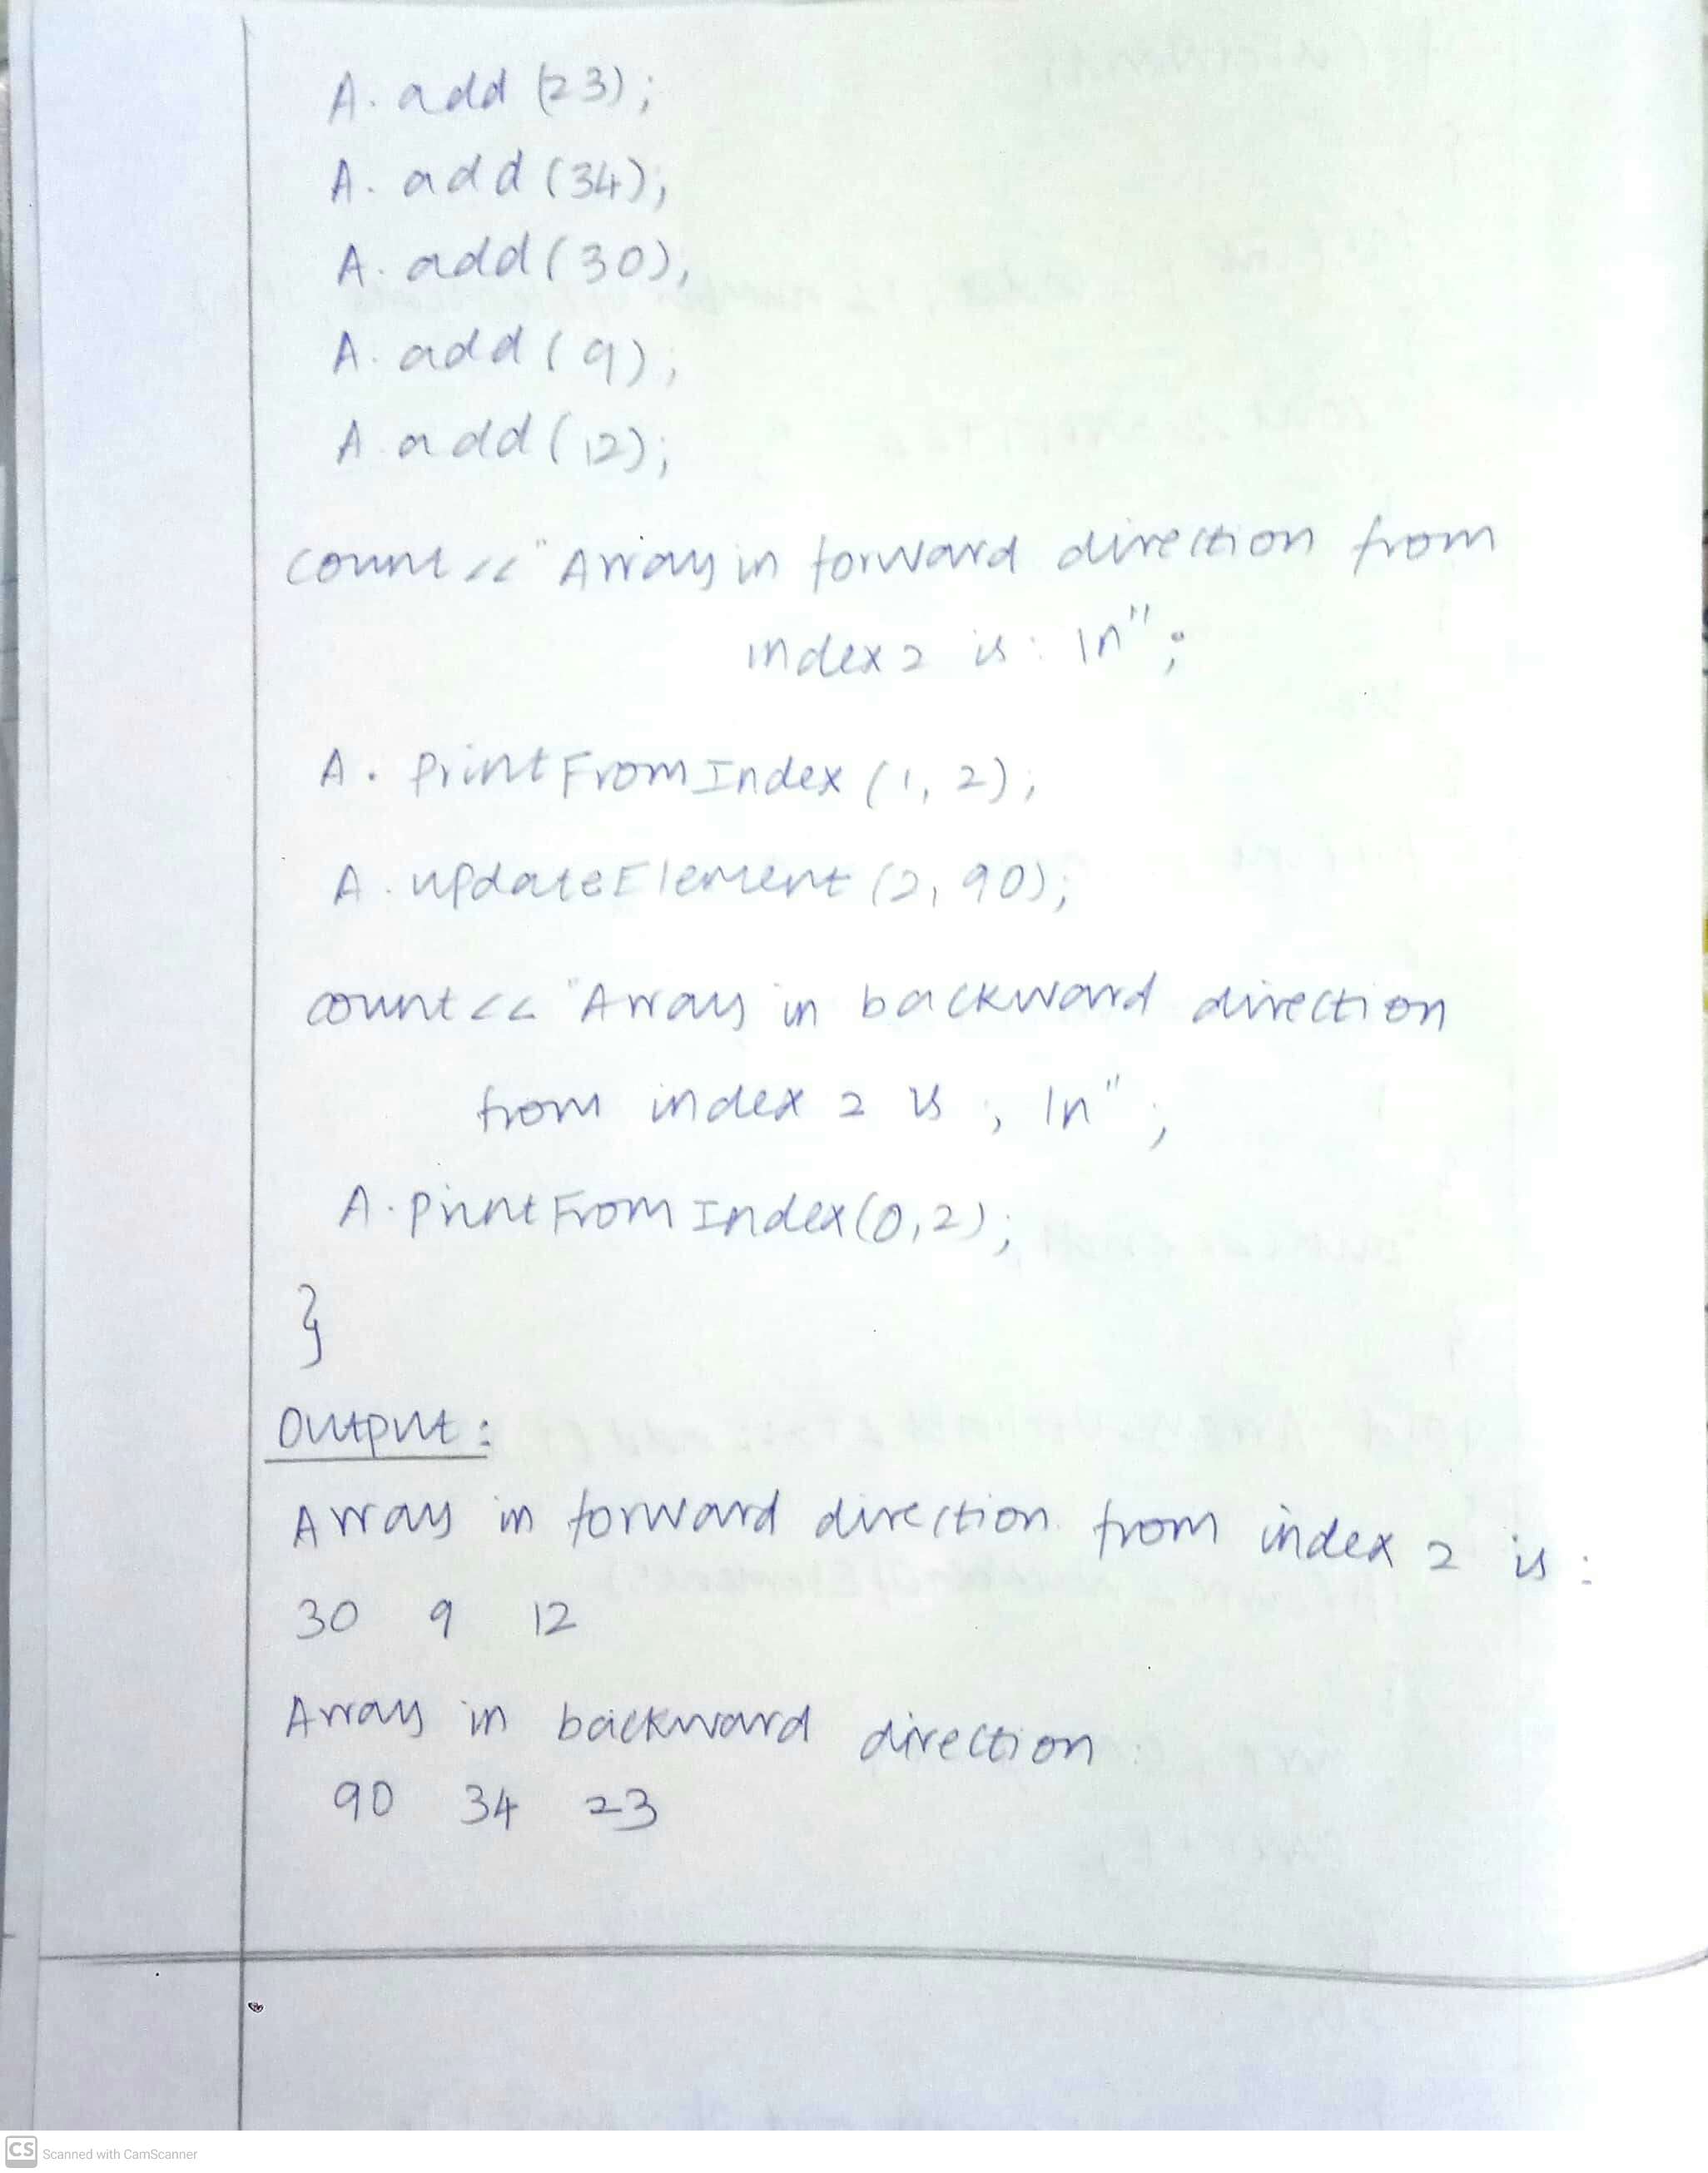 A. add (23);
A. add (34);
A. add (30);
A. add (9);
A. add (12);
count << "Array in forward direction from
index 2 is: \n";
A. Print From Index (1, 2);
A. update Element (2, 90);
count << "Array in backward direction
from index 2 is ; \n";
A. Print From Index (0, 2);
}
Output:
Array in forward direction from index 2 is:
30 9 12
Array in backward direction
90 34 23
CS Scanned with CamScanner